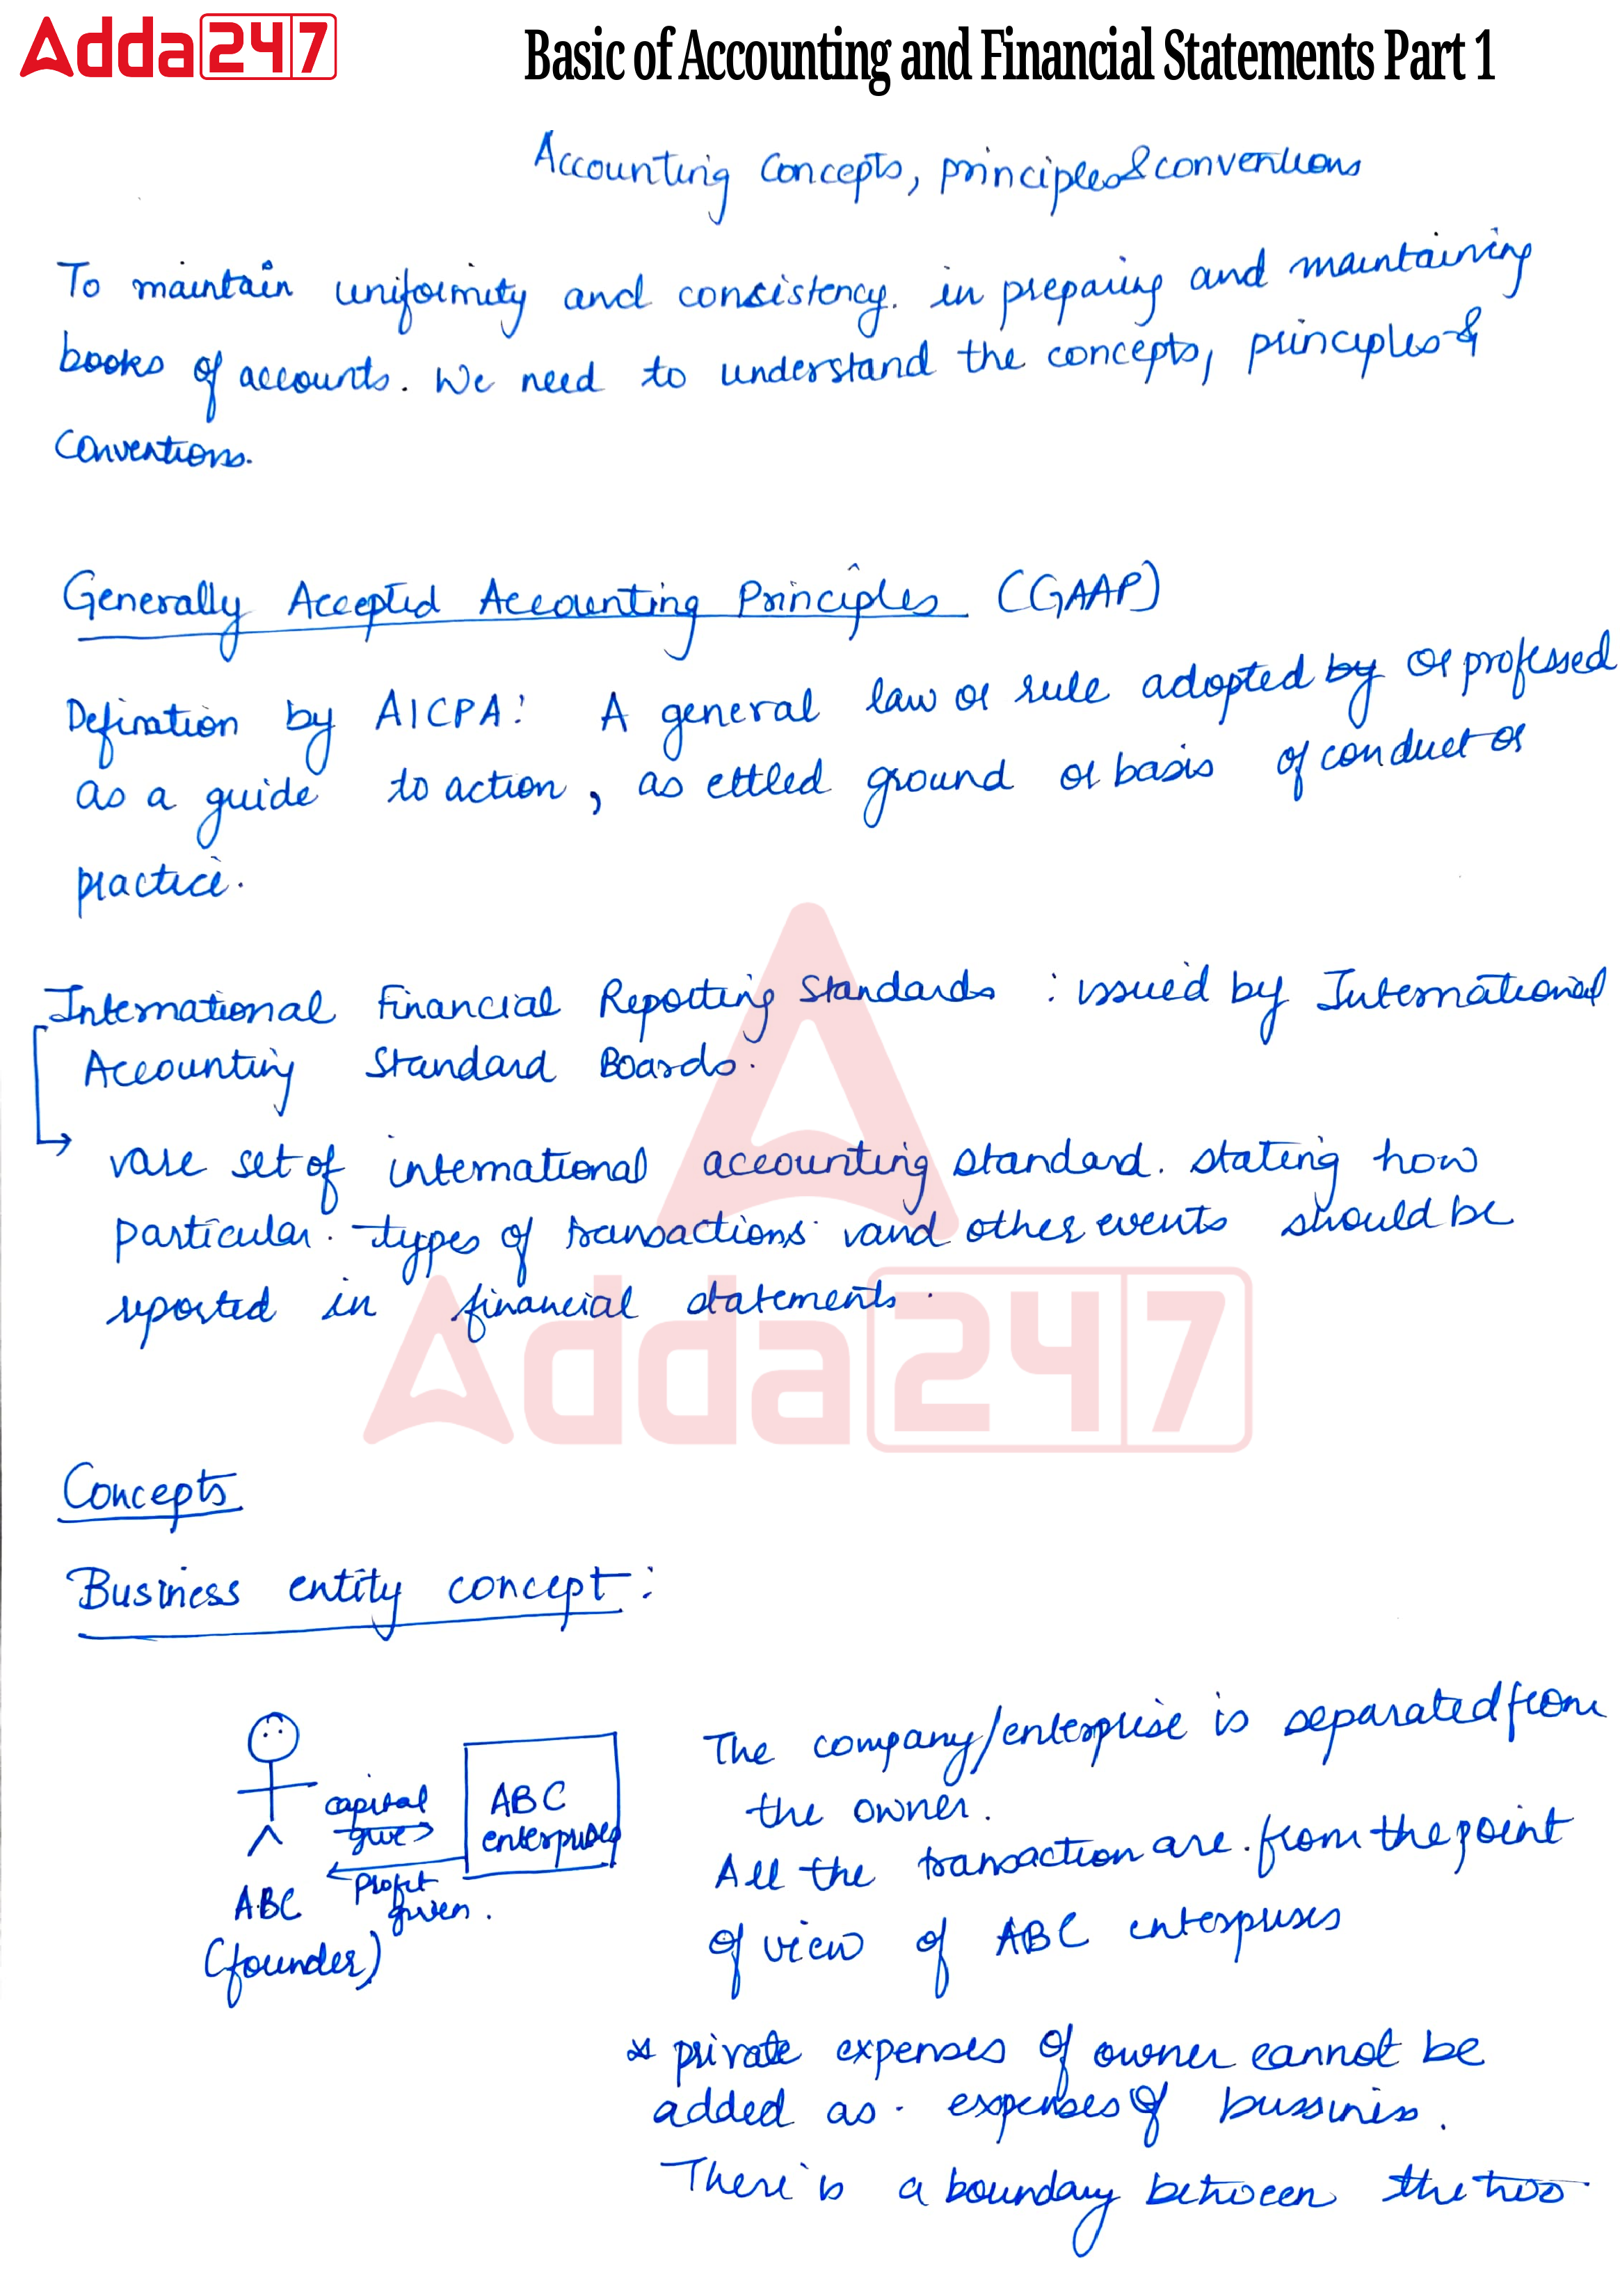 Adda247
Basic of Accounting and Financial Statements Part 1
Accounting Concepts, principles & conventions
To maintain uniformity and consistency. in preparing and maintaining
books of accounts. We need to understand the concepts, principles &
Conventions.
Generally Accepted Accounting Principles (GAAP)
Defination by AICPA: A general law or rule adopted by or professed
as a guide to action, as ettled ground or basis of conduct or
practice.
International Financial Reporting Standards : issued by International
Accounting Standard Boards.
→ are set of international accounting standard. stating how
particular. types of transactions and other events should be
reported in financial statements.
Adda247
Concepts
Business entity concept:
capital
give →
ABC
enterprises
← Profit
given.
ABC
(founder)
The company/enterprise is separated from
the owner.
All the transaction are. from the point
of view of ABC enterprises
* private expenses of owner cannot be
added as. expenses of bussiniss.
There is a boundary between the two